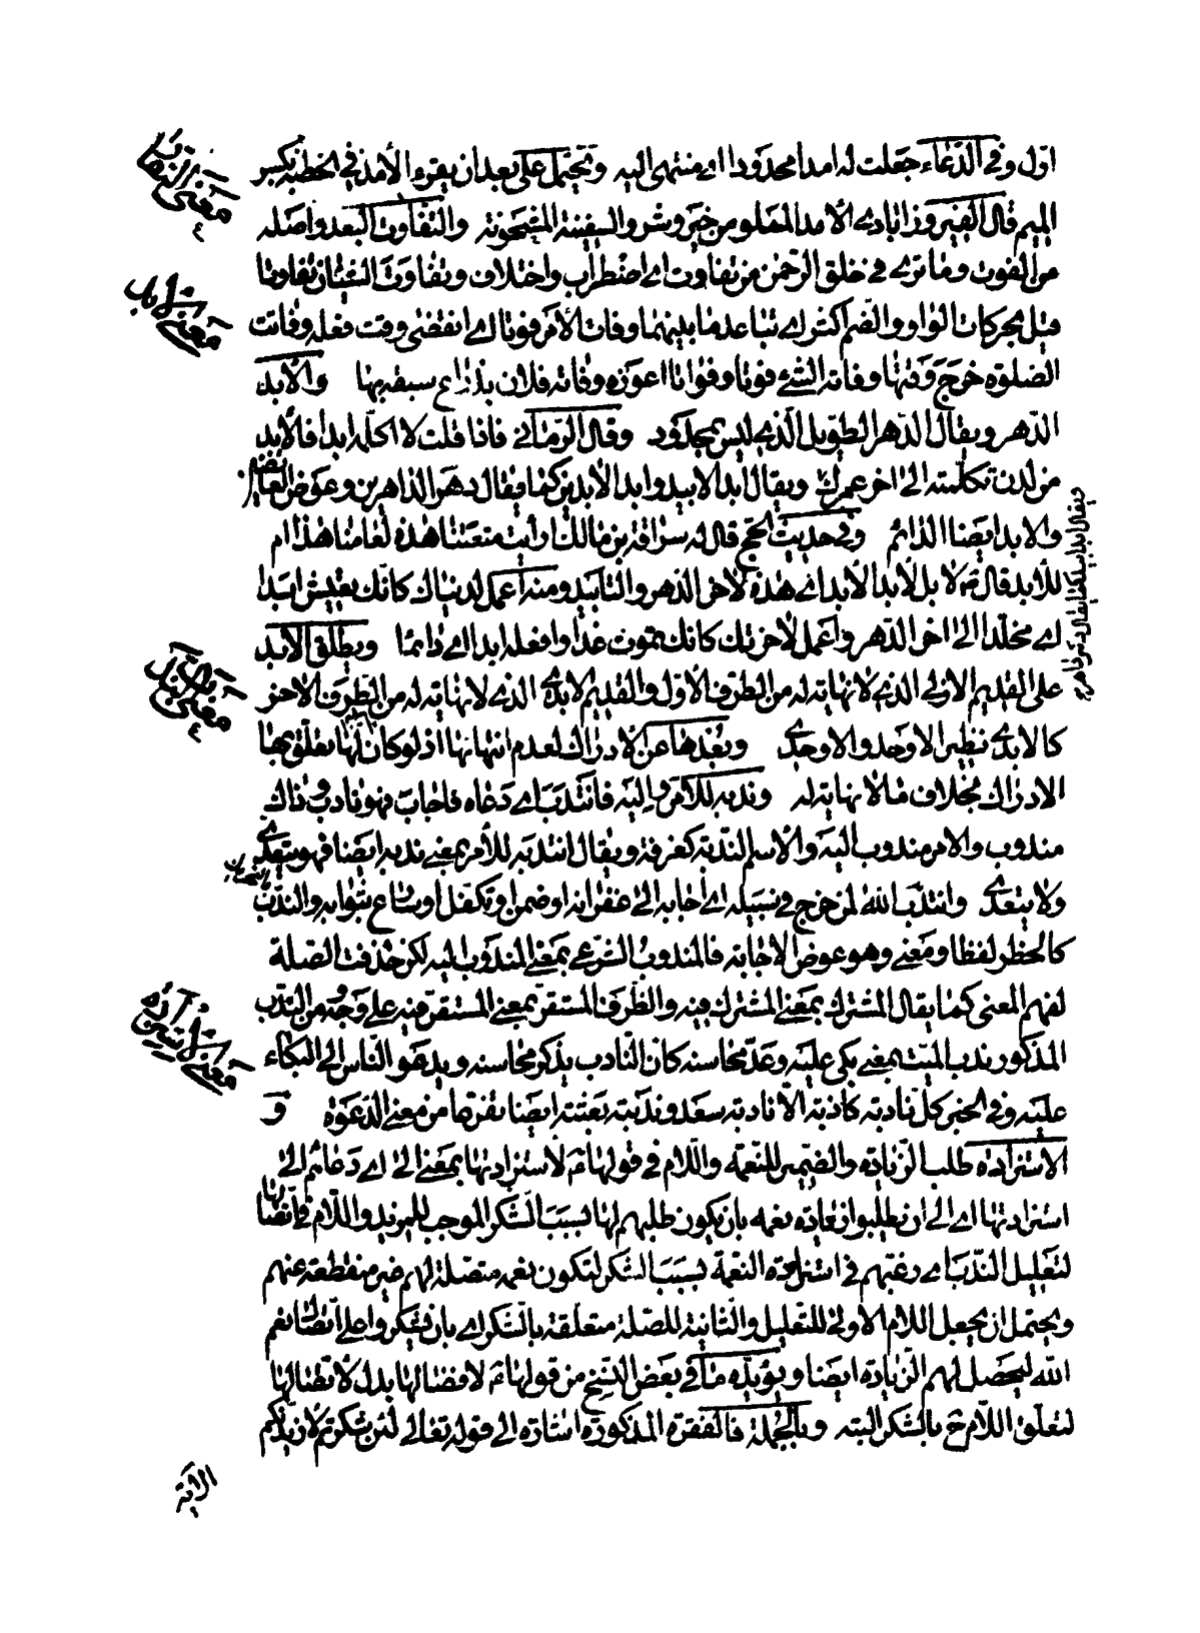 اول وفي الدعاء جعلت له امدا محدودا اى منتهى اليه ويحتمل على بعد ان يقرء الأمد في الخطبة بكسر
الميم قال الفيروزابادى الآمد المملو من خير وشر والسفينة المشحونة والتفاوت البعد واصله
من الفوت وما ترى في خلق الرحمن من تفاوت اى اضطراب واختلاف وتفاوت الشيئان تفاوتا
قيل بحركات الواو والضم اكثر اى تباعد ما بينهما وفات الأمر فوتا اى انقضى وقت فعله وفاتت
الصلوة خرج وقتها وفاته الشئ فوتا وفواتا اعوزه وفاته فلان بذراع سبقه بها والأبد
الدهر ويقال الدهر الطويل الذي ليس بمحدود وقال الرماني فاذا قلت لا اكلمه ابدا فالأبد
من لدن تكلمت الى اخر عمرك ويقال ابد الابيد وابد الآبدين كما يقال دهر الداهرين وعوض العائضين
والابد ايضا الدائم وفي حديث الحج قال له سراقة بن مالك ارأيت متعتنا هذه لعامنا هذا ام
للأبد قال لا بل لأبد الأبد اى هذه لآخر الدهر والتأبيد ومنه اعمل لدنياك كانك تعيش ابدا
اى مخلدا الى اخر الدهر واعمل لآخرتك كانك تموت غدا وافعله ابدا اى دائما ويطلق الأبد
على القديم الاولى الذي لا نهاية له من الطرف الأول والقديم الابدى الذي لا نهاية له من الطرف الآخر
كالابدى نظير الاوحد والاوحدى وبعدها عن الادراك لعدم انتهائها اذ لو كان لها نهاية لتعلق بها
الادراك بخلاف ما لا نهاية له وندبه للأمر واليه فانتدب اى دعاه فاجاب فهو نادب وذاك
مندوب والامر مندوب اليه والاسم الندبة كغرفة ويقال انتدبه للأمر بمعنى ندبه ايضا فهو يتعدى
ولا يتعدى وانتدب الله لمن خرج في سبيله اى اجابه الى غفرانه او ضمن او تكفل او سارع بثوابه والندب
كالخطر لفظا ومعنى وهو عوض الاجابة فالمندوب الشرعي بمعنى المندوب اليه لكن حذفت الصلة
لفهم المعنى كما يقال المشترك بمعنى المشترك فيه والظرف المستقر بمعنى المستقر فيه على وجه من الندب
المذكور ندب الميت بمعنى بكى عليه وعد محاسنه كان النادب يذكر محاسنه ويدعو الناس الى البكاء
عليه وفي الخبر كل نادبة كاذبة الا نادبة سعد وندبته بعثته ايضا بقربها من معنى الدعوة و
الاستزادة طلب الزيادة والضمير للنعمة واللام في قولها لاستزادتها بمعنى الى اى دعاهم الى
استزادتها اى الى ان يطلبوا زيادة نعمه بان يكون طلبهم لها بسبب الشكر الموجب للمزيد واللام في اتصالها
لتعليل الندب اى رغبهم في استزادة النعمة بسبب الشكر لتكون نعمه متصلة لهم غير منقطعة عنهم
ويحتمل ان يجعل اللام الاولى للتعليل والثانية للصلة متعلقة بالشكر اى بان يشكروا على اتصال نعم
الله ليحصل لهم الزيادة ايضا ويؤيده ما في بعض النسخ من قولها لافضالها بدل لاتصالها
لتعلق اللام ح بالشكر البتة وبالجملة فالفقرة المذكورة اشارة الى قوله تعالى لئن شكرتم لأزيدنكم
الآية